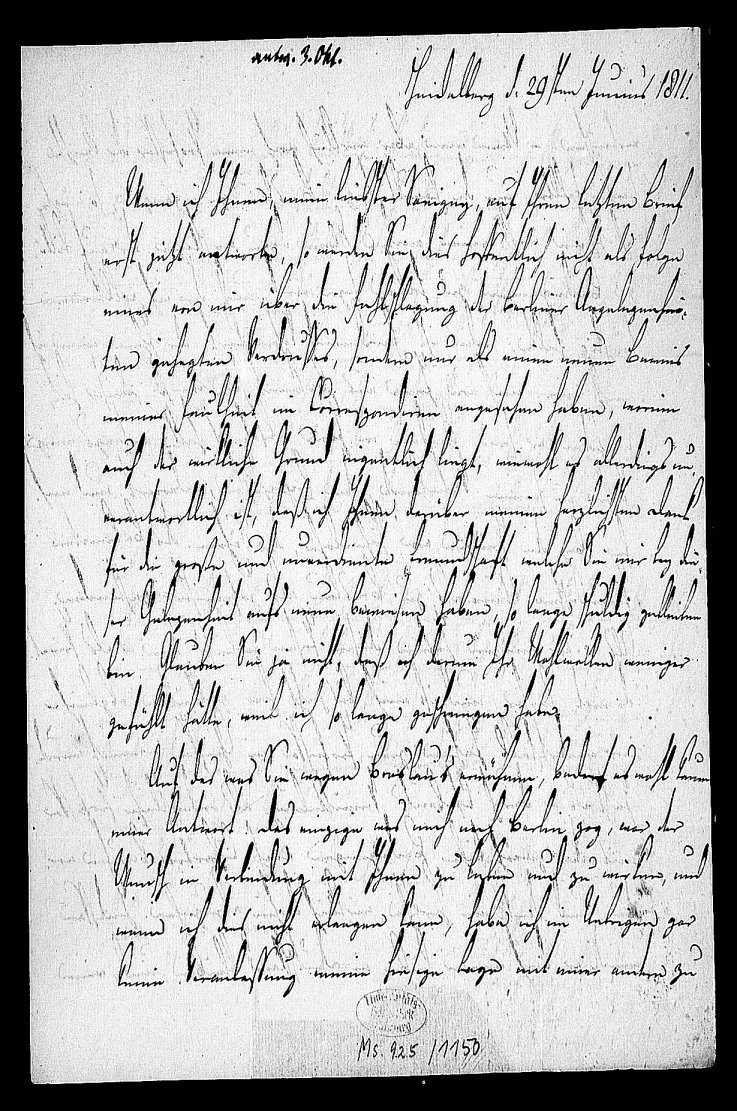 antw. 3. Okt.
Heidelberg d. 29sten Junius 1811.
Wenn ich Ihnen, mein liebster Savigny, auf Ihren letzten Brief
erst jetzt antworte, so werden Sie dies hoffentlich nicht als Folge
eines von mir über die Fehlschlagung der Berliner Angelegenhei-
ten gehegten Verdrusses, sondern nur als einen neuen Beweis
meiner Faulheit im Correspondiren angesehen haben, worin
auch der wirkliche Grund eigentlich liegt, wiewohl es allerdings un-
verantwortlich ist, daß ich Ihnen darüber meinen herzlichsten Dank
für die große und unverdiente Freundschaft welche Sie mir bey die-
ser Gelegenheit aufs neue bewiesen haben, so lange schuldig geblieben
bin. Glauben Sie ja nicht, daß ich darum Ihr Wohlwollen weniger
gefühlt hätte, weil ich so lange geschwiegen habe.
Auf das was Sie wegen Breslaus erwähnen, bedarf es wohl kaum
einer Antwort. Das einzige was mich nach Berlin zog, war der
Wunsch in Verbindung mit Ihnen zu leben und zu wirken, und
wenn ich dies nicht erlangen kann, habe ich im Uebrigen gar
keine Veranlassung meine hiesige Lage mit einer andern zu
Ms. 925 /1150